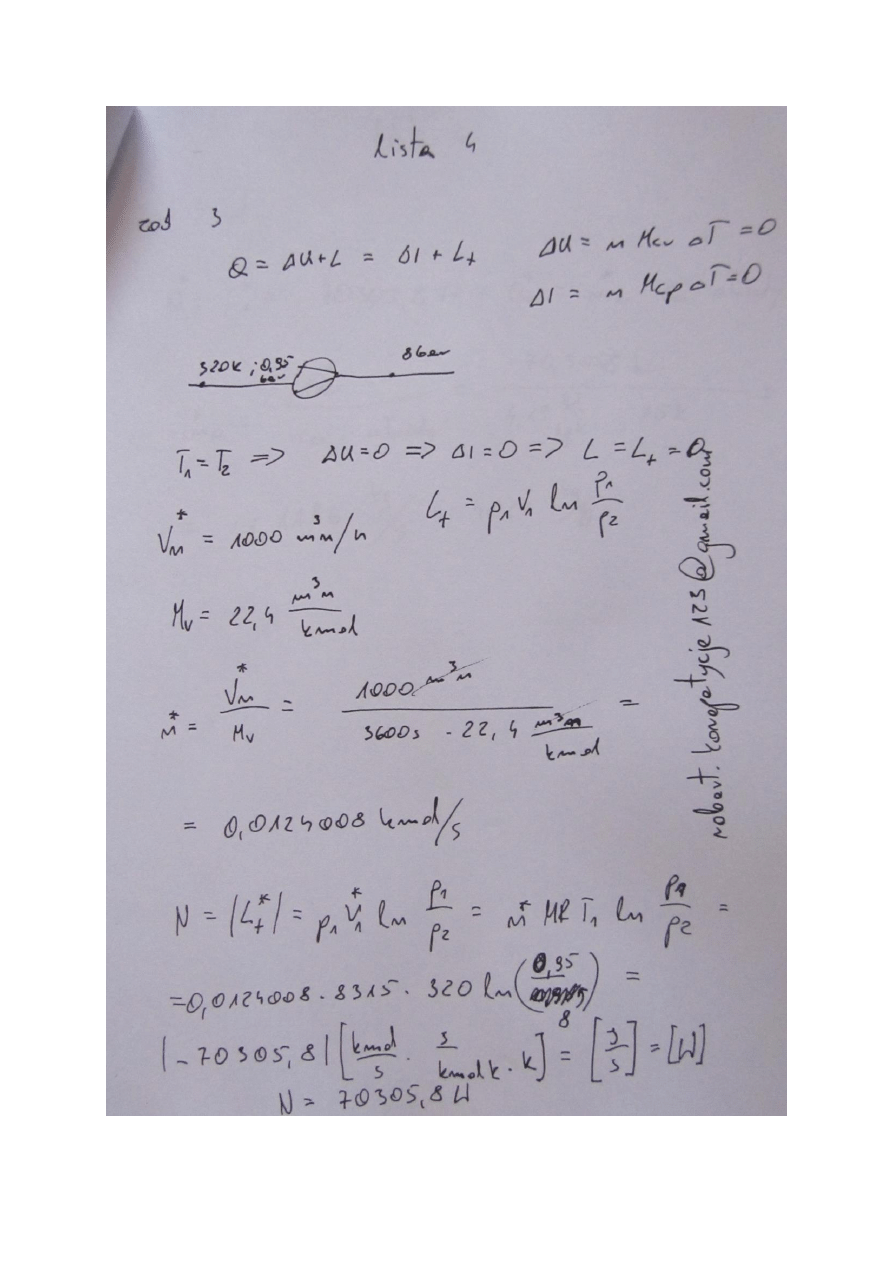 Lista 4
zad 3
Q = ΔU+L = ΔI + Lt
ΔU = n Mcv ΔT = 0
ΔI = n Mcp ΔT = 0
320K ; 0,95 bar
8 bar
T1 = T2 => ΔU=0 => ΔI=0 => L = Lt = Q
Lt = p1 V1 ln p1/p2
Vn* = 1000 m³n/h
Mv = 22,4 m³n/kmol
n* = Vn*/Mv = 1000 m³n / 3600s · 22,4 m³n/kmol =
= 0,0124008 kmol/s
N = |Lt*| = p1 V1* ln p1/p2 = n* MR T1 ln p1/p2 =
= 0,0124008 · 8315 · 320 ln(0,95/8) =
|-70305,8| [kmol/s · J/kmolK · K] = [J/s] = [W]
N = 70305,8 W
robert.korepetycje123@gmail.com